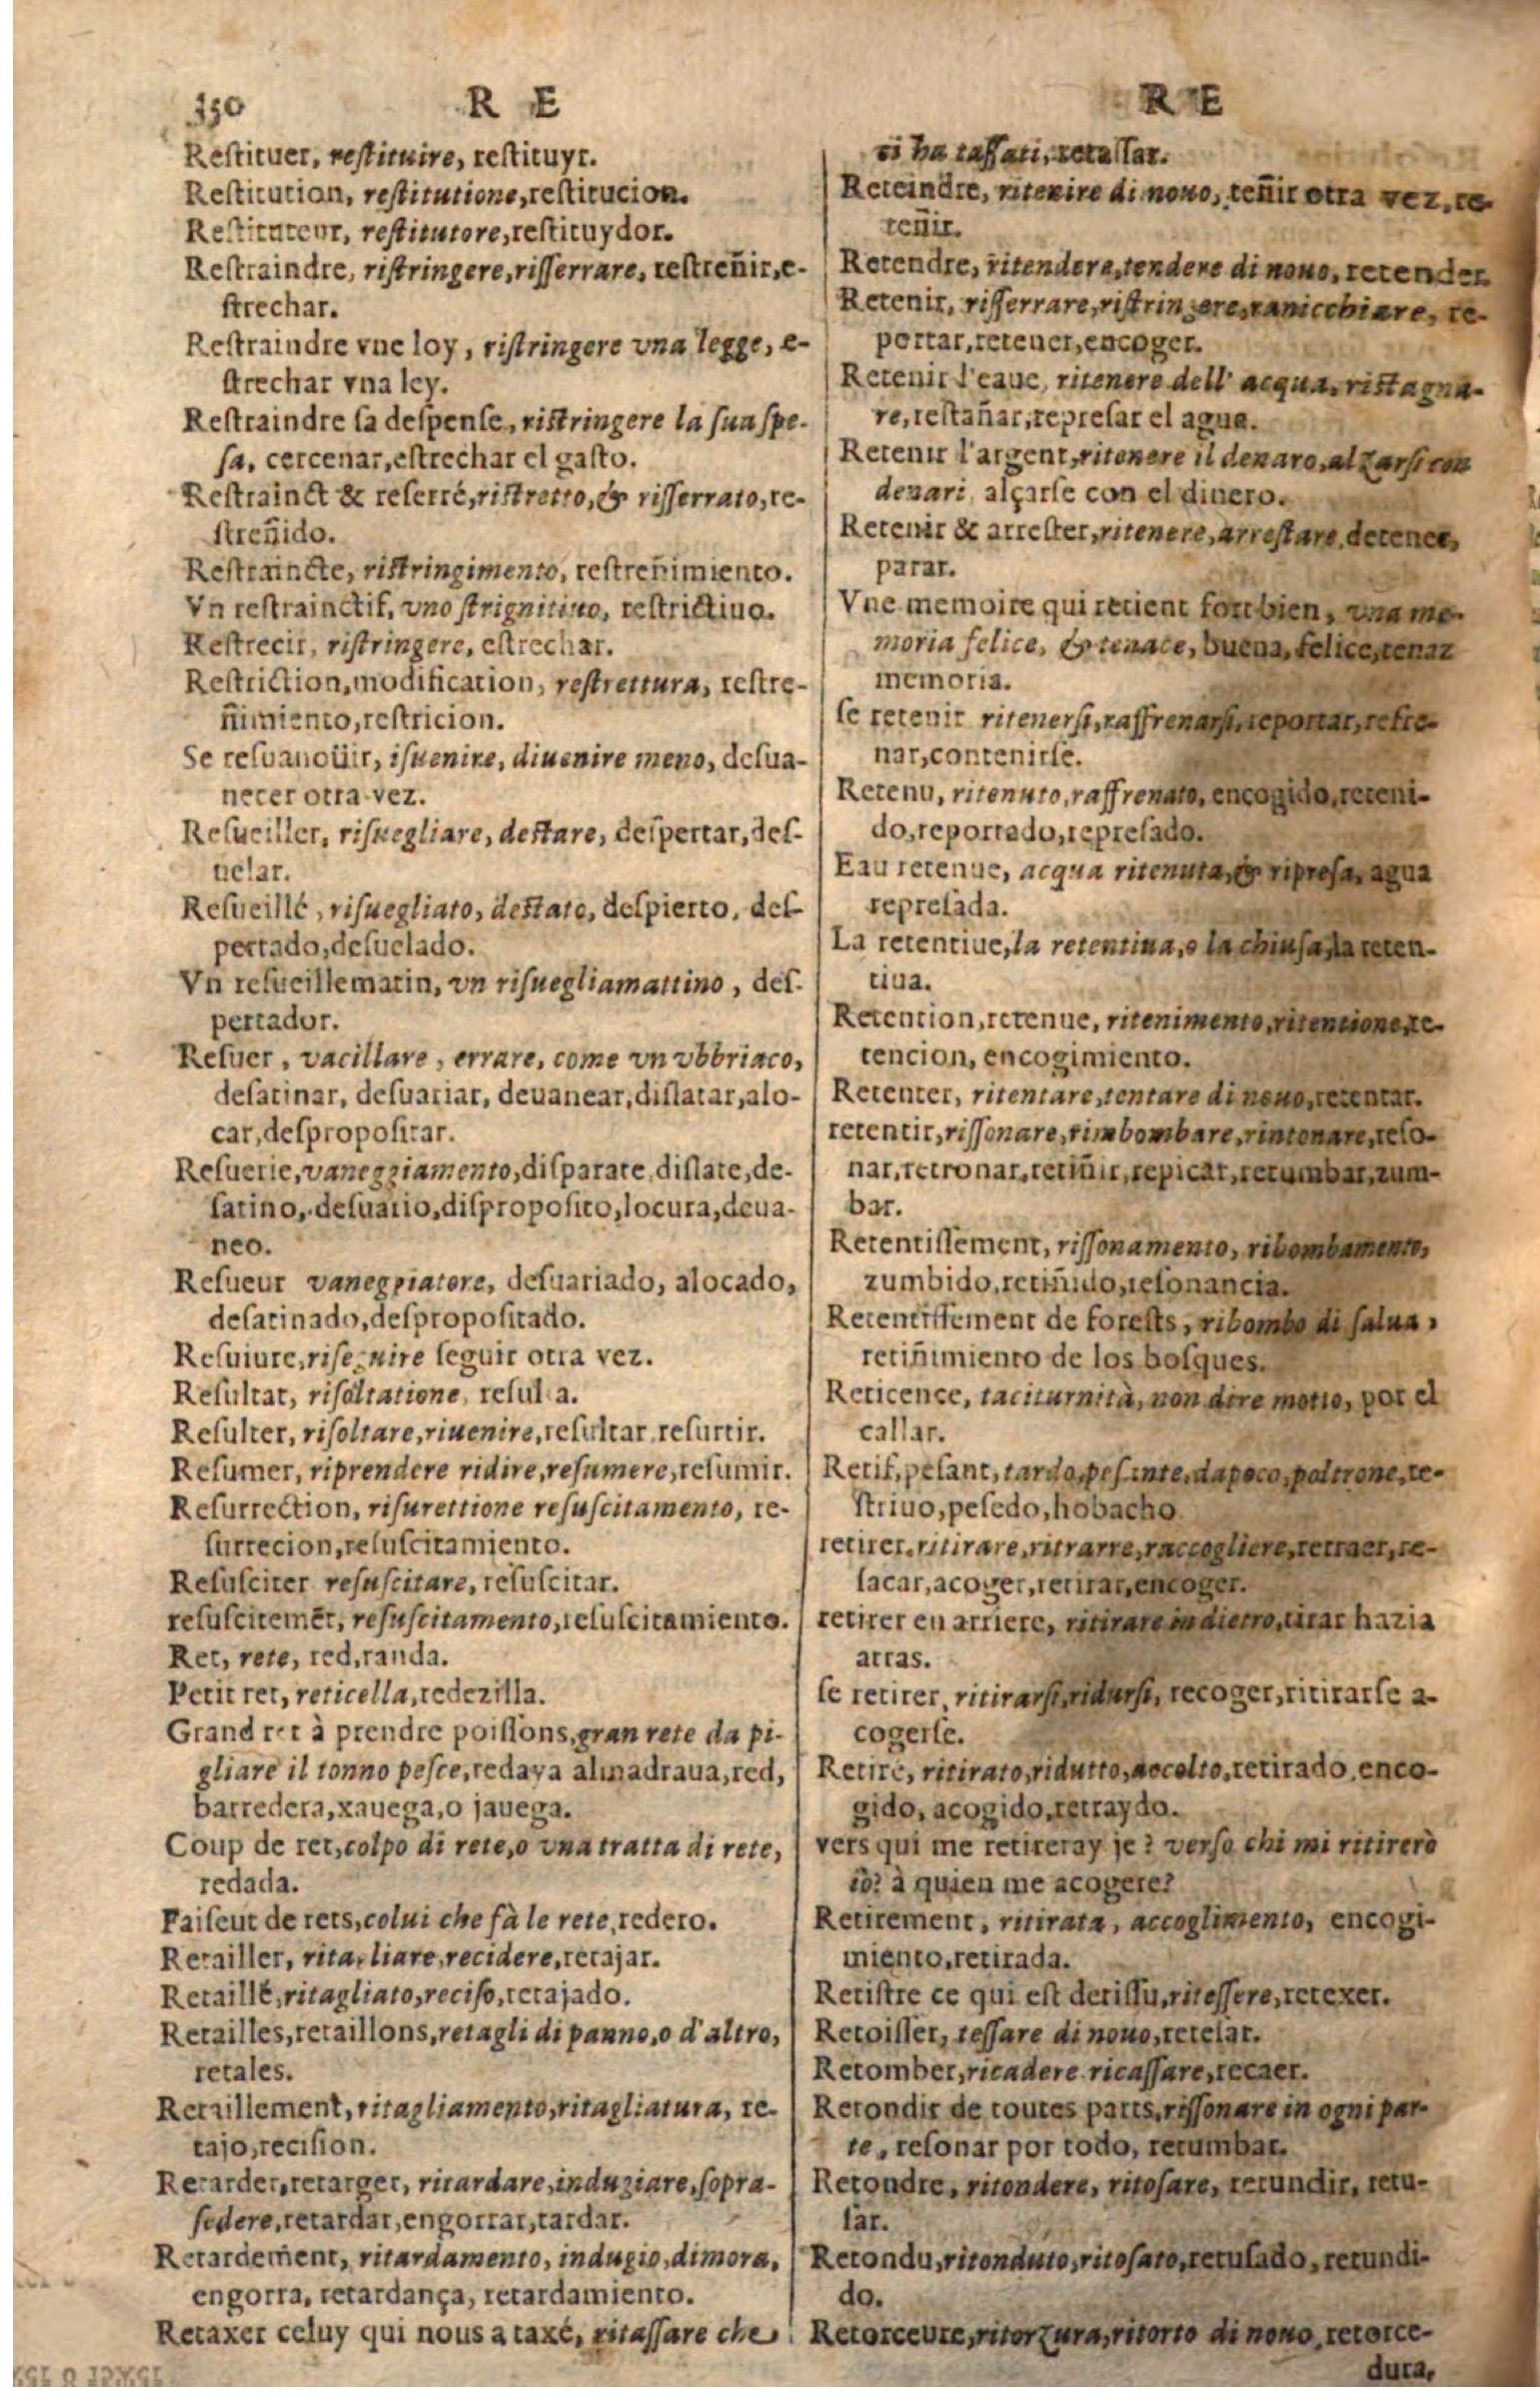 350 R E
Restituer, restituire, restituyr.
Restitution, restitutione, restitucion.
Restituteur, restitutore, restituydor.
Restraindre, ristringere, risserrare, restreñir, e-
strechar.
Restraindre vne loy, ristringere vna legge, e-
strechar vna ley.
Restraindre sa despense, ristringere la sua spe-
sa, cercenar, estrechar el gasto.
Restrainct & reserré, ristretto, & risserrato, re-
streñido.
Restraincte, ristringimento, restreñimiento.
Vn restrainctif, vno strignitiuo, restrictiuo.
Restrecir, ristringere, estrechar.
Restriction, modification, restrettura, restre-
ñimiento, restricion.
Se resuanoüir, isuenire, diuenire meno, desua-
necer otra vez.
Resueiller, risuegliare, destare, despertar, des-
uelar.
Resueillé, risuegliato, destato, despierto, des-
pertado, desuelado.
Vn resueillematin, vn risuegliamattino, des-
pertador.
Resuer, vacillare, errare, come vn vbbriaco,
desatinar, desuariar, deuanear, dislatar, alo-
car, despropositar.
Resuerie, vaneggiamento, disparate, dislate, de-
satino, desuario, disproposito, locura, deua-
neo.
Resueur vaneggiatore, desuariado, alocado,
desatinado, despropositado.
Resuiure, riseguire seguir otra vez.
Resultat, risoltatione, resulta.
Resulter, risoltare, riuenire, resultar, resurtir.
Resumer, riprendere ridire, resumere, resumir.
Resurrection, risurettione resuscitamento, re-
surrecion, resuscitamiento.
Resusciter resuscitare, resuscitar.
resuscitemēt, resuscitamento, resuscitamiento.
Ret, rete, red, randa.
Petit ret, reticella, redezilla.
Grand ret à prendre poissons, gran rete da pi-
gliare il tonno pesce, redaya almadraua, red,
barredera, xauega, o jauega.
Coup de ret, colpo di rete, o vna tratta di rete,
redada.
Faiseur de rets, colui che fà le rete, redero.
Retailler, ritagliare, recidere, retajar.
Retaillé, ritagliato, reciso, retajado.
Retailles, retaillons, retagli di panno, o d'altro,
retales.
Retaillement, ritagliamento, ritagliatura, re-
tajo, recision.
Retarder, retarger, ritardare, induziare, sopra-
sedere, retardar, engorrar, tardar.
Retardement, ritardamento, indugio, dimora,
engorra, retardança, retardamiento.
Retaxer celuy qui nous a taxé, ritassare che
R E
ci ha tassati, retassar.
Reteindre, ritenire di nouo, teñir otra vez, re-
teñir.
Retendre, ritendere, tendere di nouo, retender
Retenir, risserrare, ristringere, ranicchiare, re-
portar, retener, encoger.
Retenir l'eaue, ritenere dell' acqua, ristagna-
re, restañar, represar el agua.
Retenir l'argent, ritenere il denaro, alzarsi con
denari, alçarse con el dinero.
Retenir & arrester, ritenere, arrestare, detener,
parar.
Vne memoire qui retient fort bien, vna me-
moria felice, & tenace, buena, felice, tenaz
memoria.
se retenir ritenersi, raffrenarsi, reportar, refre-
nar, contenirse.
Retenu, ritenuto, raffrenato, encogido, reteni-
do, reportado, represado.
Eau retenue, acqua ritenuta, & ripresa, agua
represada.
La retentiue, la retentiua, o la chiusa, la reten-
tiua.
Retention, retenue, ritenimento, ritentione, re-
tencion, encogimiento.
Retenter, ritentare, tentare di nouo, retentar.
retentir, rissonare, rimbombare, rintonare, reso-
nar, retronar, retiñir, repicar, retumbar, zum-
bar.
Retentissement, rissonamento, ribombamento,
zumbido, retiñido, resonancia.
Retentissement de forests, ribombo di salua,
retiñimiento de los bosques.
Reticence, taciturnità, non dire motto, por el
callar.
Retif, pesant, tardo, pesante, dapoco, poltrone, re-
striuo, pesedo, hobacho
retirer, ritirare, ritrarre, raccogliere, retraer, re-
sacar, acoger, retirar, encoger.
retirer en arriere, ritirare indietro, tirar hazia
atras.
se retirer, ritirarsi, ridursi, recoger, ritirarse a-
cogerse.
Retiré, ritirato, ridutto, accolto, retirado, enco-
gido, acogido, retraydo.
vers qui me retireray je? verso chi mi ritirerò
iò? à quien me acogere?
Retirement, ritirata, accoglimento, encogi-
miento, retirada.
Retistre ce qui est detissu, ritessere, retexer.
Retoisser, tessare di nouo, retesar.
Retomber, ricadere ricassare, recaer.
Retondir de toutes parts, rissonare in ogni par-
te, resonar por todo, retumbar.
Retondre, ritondere, ritosare, retundir, retu-
sar.
Retondu, ritonduto, ritosato, retusado, retundi-
do.
Retorceure, ritorzura, ritorto di nouo, retorce-
dura,